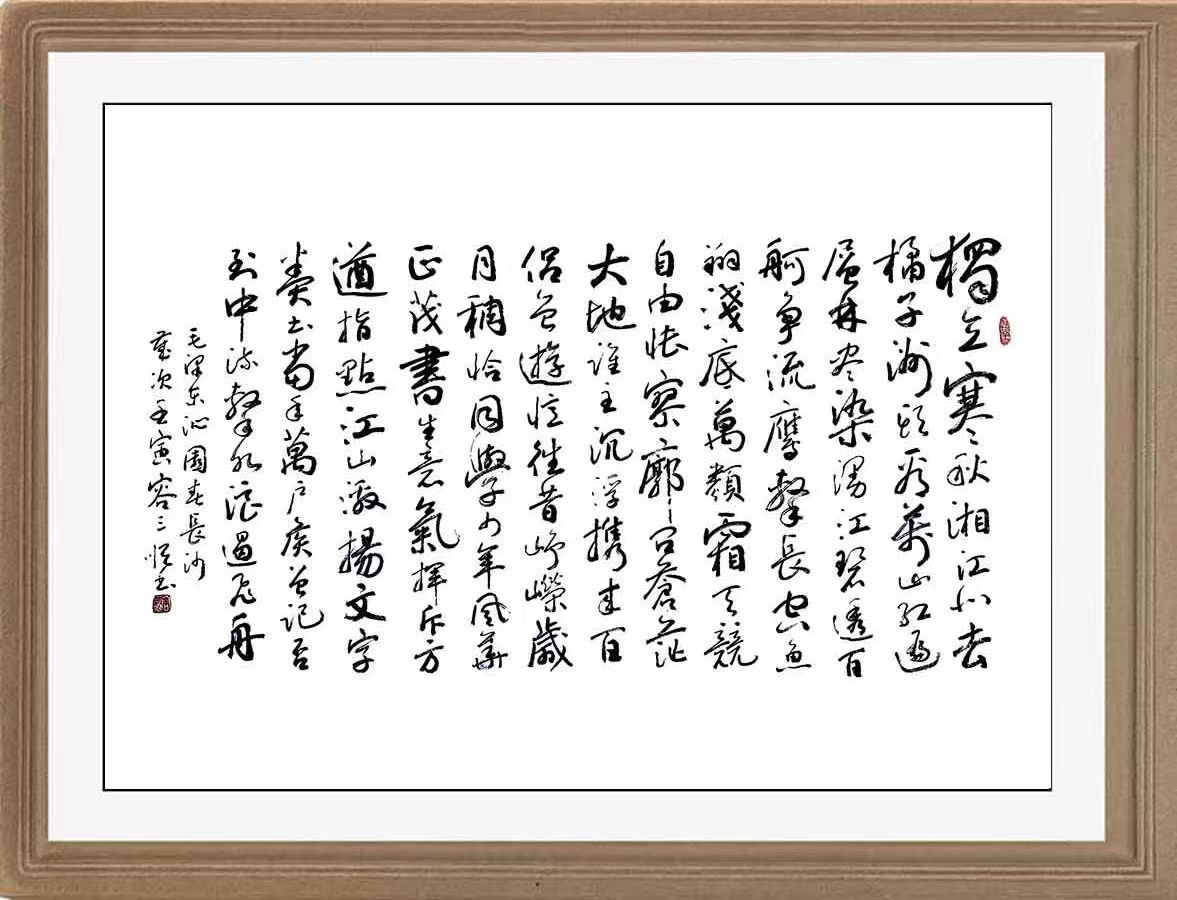 獨立寒秋湘江北去
橘子洲頭看萬山紅遍
層林尽染漫江碧透百
舸争流鷹擊長空魚
翔淺底萬類霜天競
自由悵寥廓問蒼茫
大地誰主沉浮携来百
侣曾遊憶往昔崢嶸歲
月稠恰同學少年風華
正茂書生意氣揮斥方
遒指點江山激揚文字
糞土當年萬户侯曾記否
到中流擊水浪遏飛舟
毛澤东沁園春長沙
歲次壬寅容三書